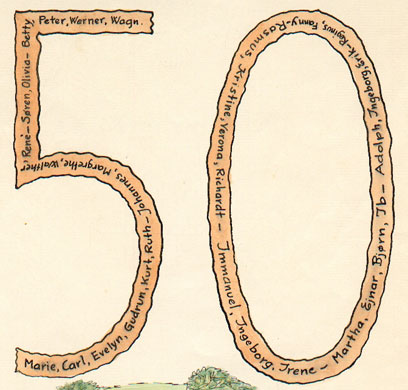 Peter, Werner, Wagn.
René - Søren, Olivia - Betty,
Johannes, Margrethe, Walther,
Marie, Carl, Evelyn, Gudrun, Kurt, Ruth -
Rasmus, Kristine, Verona, Richardt - Immanuel, Ingeborg, Irene - Martha, Ejnar, Bjørn, Ib - Adolph, Ingeborg, Erik - Reginus, Fanny -